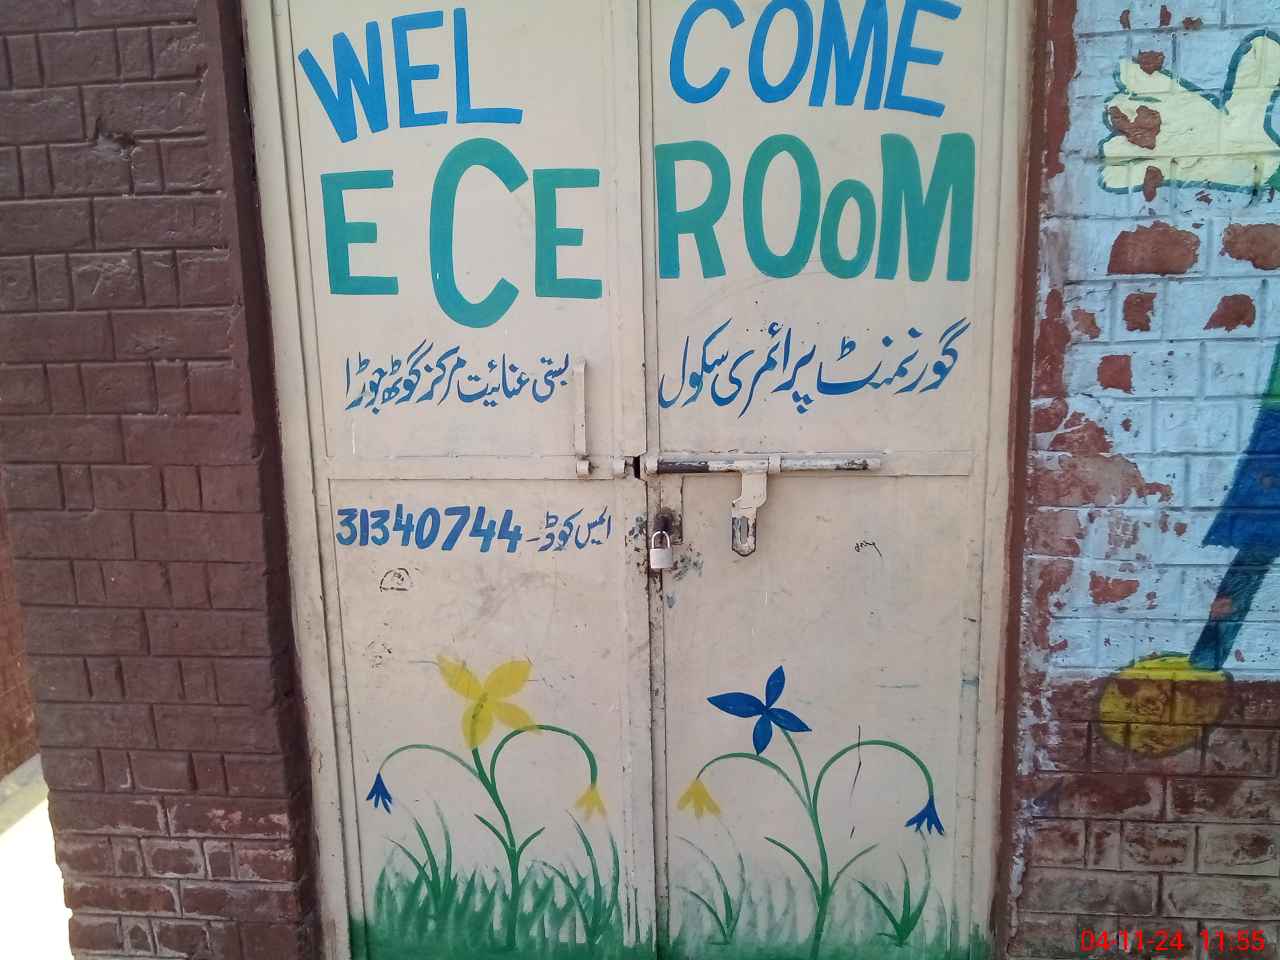 WEL COME
ECE ROOM
گورنمنٹ پرائمری سکول بستی عنائیت مرکز گوٹھ جوڑا
ایمس کوڈ - 31340744
04-11-24 11:55